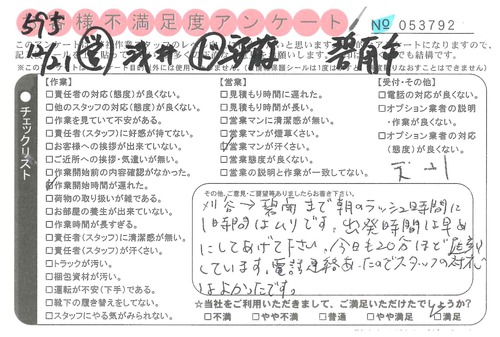 お客様不満足度アンケート
№ 053792
595
碧南市
チェックリスト
【作業】
□責任者の対応(態度)が良くない。
□他のスタッフの対応(態度)が良くない。
□作業を見ていて不安がある。
□責任者(スタッフ)に好感が持てない。
□お客様への挨拶が出来ていない。
□ご近所への挨拶・気遣いが無い。
□作業開始前の内容確認がなかった。
□作業開始時間が遅れた。
□荷物の取り扱いが雑である。
□お部屋の養生が出来ていない。
□作業時間が長すぎる。
□責任者(スタッフ)に清潔感が無い。
□責任者(スタッフ)が汗くさい。
□トラックが汚い。
□梱包資材が汚い。
□運転が不安(下手)である。
□靴下の履き替えをしてない。
□スタッフにやる気がみられない。
【営業】
□見積もり時間に遅れた。
□見積もり時間が長い。
□営業マンに清潔感が無い。
□営業マンが煙草くさい。
□営業マンが汗くさい。
□営業態度が良くない。
□営業の説明と作業が一致してない。
【受付・その他】
□電話の対応(態度)が良くない。
□オプション業者の説明・作業が良くない。
□オプション業者の対応(態度)が良くない。
その他、ご意見・ご要望等ありましたらお書き下さい。
刈谷→碧南まで朝のラッシュ時間に
1時間はムリです。出発時間は早め
にしてあげて下さい。今日も20分ほど遅刻
しています。電話連絡あったのでスタッフの対応
はよかったです。
☆当社をご利用いただきまして、ご満足いただけたでしょうか?
□不満 □やや不満 □普通 □やや満足 □満足